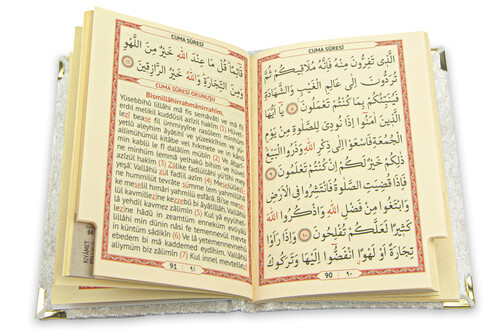 CUMA SÛRESİ
الَّذِي تَفِرُّونَ مِنْهُ فَإِنَّهُ مُلَاقِيكُمْ ثُمَّ
تُرَدُّونَ إِلَى عَالِمِ الْغَيْبِ وَالشَّهَادَةِ
فَيُنَبِّئُكُمْ بِمَا كُنْتُمْ تَعْمَلُونَ ﴿٨﴾ يَا أَيُّهَا
الَّذِينَ آمَنُوا إِذَا نُودِيَ لِلصَّلٰوةِ مِنْ يَوْمِ
الْجُمُعَةِ فَاسْعَوْا إِلَى ذِكْرِ اللّٰهِ وَذَرُوا الْبَيْعَ
ذٰلِكُمْ خَيْرٌ لَكُمْ إِنْ كُنْتُمْ تَعْلَمُونَ ﴿٩﴾
فَإِذَا قُضِيَتِ الصَّلٰوةُ فَانْتَشِرُوا فِي الْأَرْضِ
وَابْتَغُوا مِنْ فَضْلِ اللّٰهِ وَاذْكُرُوا اللّٰهَ
كَثِيرًا لَعَلَّكُمْ تُفْلِحُونَ ﴿١٠﴾ وَإِذَا رَأَوْا
تِجَارَةً أَوْ لَهْوًا انْفَضُّوا إِلَيْهَا وَتَرَكُوكَ
90 ٩٠
CUMA SÛRESİ
قَائِمًا قُلْ مَا عِنْدَ اللّٰهِ خَيْرٌ مِنَ اللَّهْوِ
وَمِنَ التِّجَارَةِ وَاللّٰهُ خَيْرُ الرَّازِقِينَ ﴿١١﴾
CUMA SÛRESİ OKUNUŞU
Bismillâhirrahmânirrahîm.
Yüsebbihû lillâhi mâ fis semâvâti ve mâ fil
erdil melikil kuddûsil azîzil hakîm (1) Hüvel
lezî bease fil ümmiyyîne rasûlem minhüm
yetlû aleyhim âyâtihî ve yüzekkîhim ve yü
allimühümül kitâbe vel hikmete ve in kânû
min kablü le fî dalâlim mübîn (2) Ve âharî
ne minhüm lemmâ yelhakû bihim ve hüvel
azîzül hakîm (3) Zâlike fadlüllâhi yü'tîhi mey
yeşâ'. Vallâhü zül fadlil azîm (4) Meselüllezî
ne hummilüt tevrâte sümme lem yahmilûhâ
ke meselil hımâri yahmilü esfârâ. Bi'se mese
lül kavmillezîne kezzebû bi âyâtillâh. Vallâhü
lâ yehdil kavmez zâlimîn (5) Kul yâ eyyühel
lezîne hâdû in zeamtüm enneküm evliyâü
lillâhi min dûnin nâsi fe temennevül mevte
in küntüm sâdikîn (6) Ve lâ yetemennevnehû
ebedem bi mâ kaddemet eydîhim. Vallâhü
alîmüm biz zâlimîn (7) Kul innel mevtelle
91 ٩١
KIYAMET